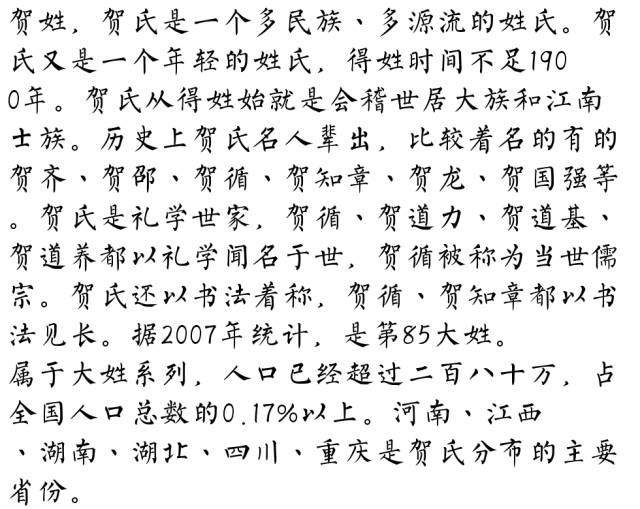 贺姓，贺氏是一个多民族、多源流的姓氏。贺
氏又是一个年轻的姓氏，得姓时间不足190
0年。贺氏从得姓始就是会稽世居大族和江南
士族。历史上贺氏名人辈出，比较着名的有的
贺齐、贺邵、贺循、贺知章、贺龙、贺国强等
。贺氏是礼学世家，贺循、贺道力、贺道基、
贺道养都以礼学闻名于世，贺循被称为当世儒
宗。贺氏还以书法着称，贺循、贺知章都以书
法见长。据2007年统计，是第85大姓。
属于大姓系列，人口已经超过二百八十万，占
全国人口总数的0.17%以上。河南、江西
、湖南、湖北、四川、重庆是贺氏分布的主要
省份。